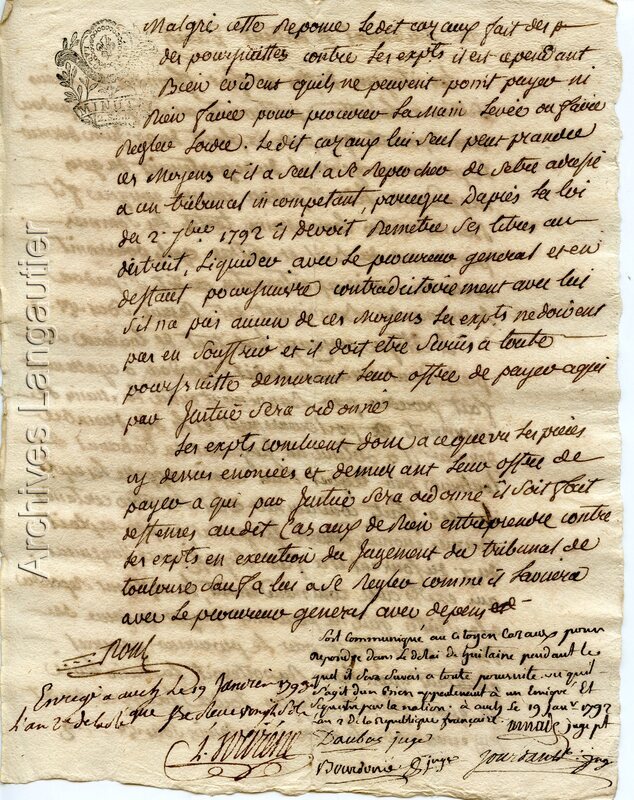 MINUTE
Malgré cette Reponse Ledit cazaux fait des
des poursuittes contre Les expts il est cependant
Bien evident quils ne peuvent point payer ni
Rien faire pour procurer La Main Levée ou faire
Regler Lordre. Ledit cazaux lui seul peut prandre
ces Moyens et il a seul a se Reprocher de setre adressé
a un tribunal incompetant, parceque Dapres La loi
du 2 7bre 1792 il devoit Remetre ses titres au
district, Liquider avec Le procureur general et en
deffaut poursuivre contradictoirement avec lui
Sil na pris aucun de ces Moyens Les expts ne doivent
pas en Souffrir et il doit être Sursis a toute
poursuitte demurant Leur offre de payer a qui
par Justice Sera ordonné
Les expts concluent donc a ce que vu Les pieces
cy dessus enoncées et demurant Leur offre de
payer a qui par Justice Sera ordonné il soit fait
deffenses audit Cazaux de Rien entreprendre contre
Les expts en execution du Jugement du tribunal de
toulouse Sauf a lui a se Regler comme il Lavisera
avec Le procureur general avec depens
Soit Communiqué au Citoyen Cazaux pour
repondre dans Le delai de huitaine pendant le
quel il sera sursis a toute poursuite vu quil
sagit dun Bien appartenant à un Emigré Et
sequestré par la nation. à auch Le 19 Janv. 1793
Lan 2 de la republique française.
juge pt
Enregé a auch Le 19 Janvier 1793
L'an 2e de la Rque
Daubas juge
Bourdonie juge
Archives Langautier